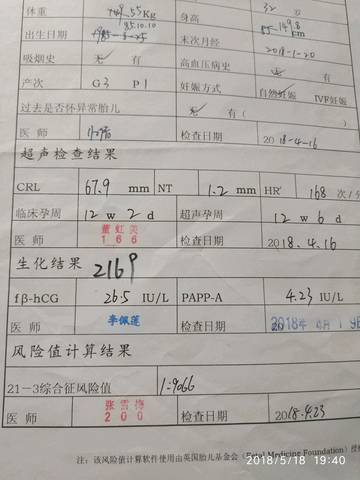 体重 55Kg 身高 149.8 cm
出生日期 85.10.10 末次月经 2018-1-20
吸烟史 无 高血压病史 无
产次 G3 P1 妊娠方式 自然妊娠 IVF妊娠
过去是否怀异常胎儿 无 有（
医师 检查日期 2018-4-16
超声检查结果
CRL 67.9 mm NT 1.2 mm HR 168 次/
临床孕周 12 w 2 d 超声孕周 12 w 6 d
医师 董虹美 166 检查日期 2018.4.16
生化结果 2169
fβ-hCG 26.5 IU/L PAPP-A 4.23 IU/L
医师 李佩莲 检查日期 2018年4月19日
风险值计算结果
21-3综合征风险值 1:9066
医师 张雪梅 200 检查日期 2018.4.23
注：该风险值计算软件使用由英国胎儿基金会（Fetal Medicine Foundation）授
2018/5/18 19:40